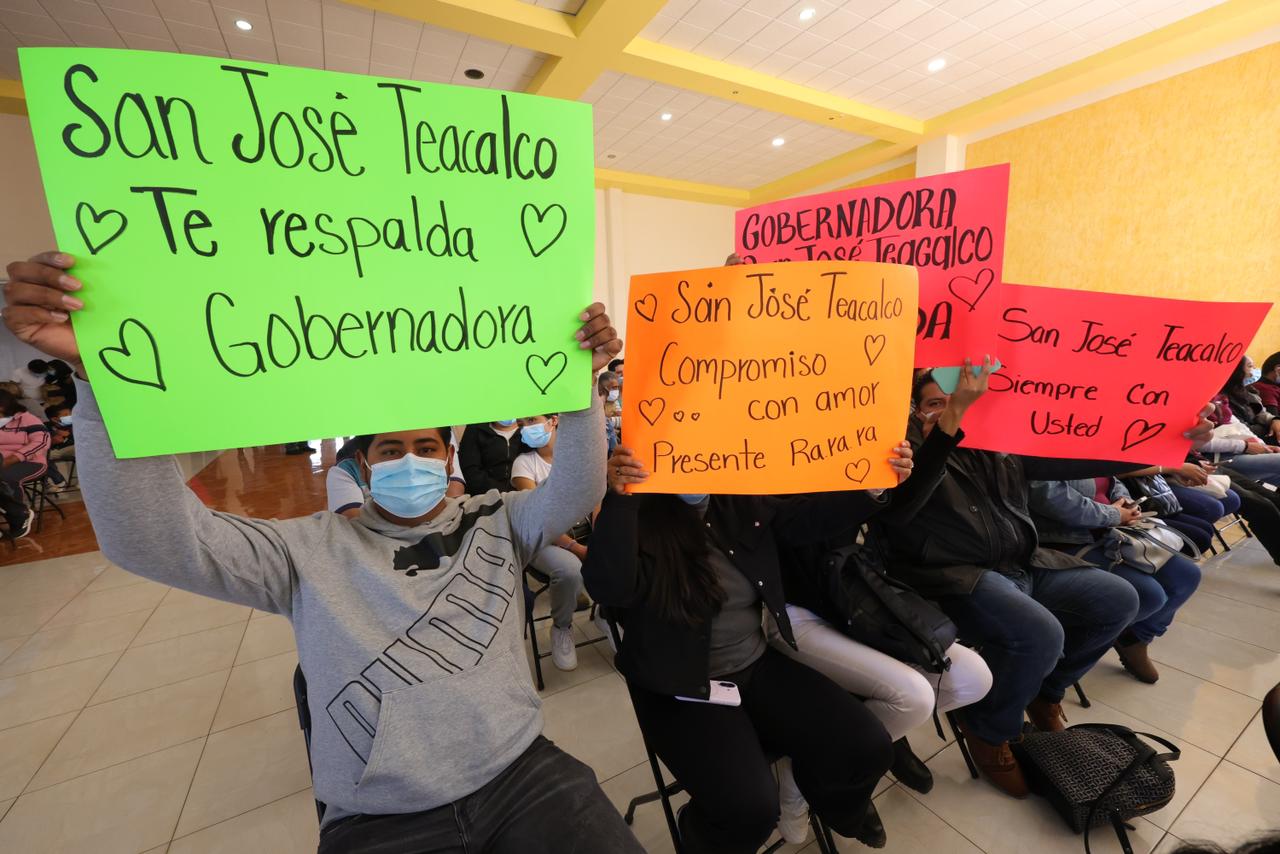 San José Teacalco
Te respalda
Gobernadora
GOBERNADORA
San José Teacalco
San José Teacalco
Compromiso
con amor
Presente Rarara
San José Teacalco
Siempre Con
Usted
PUMA